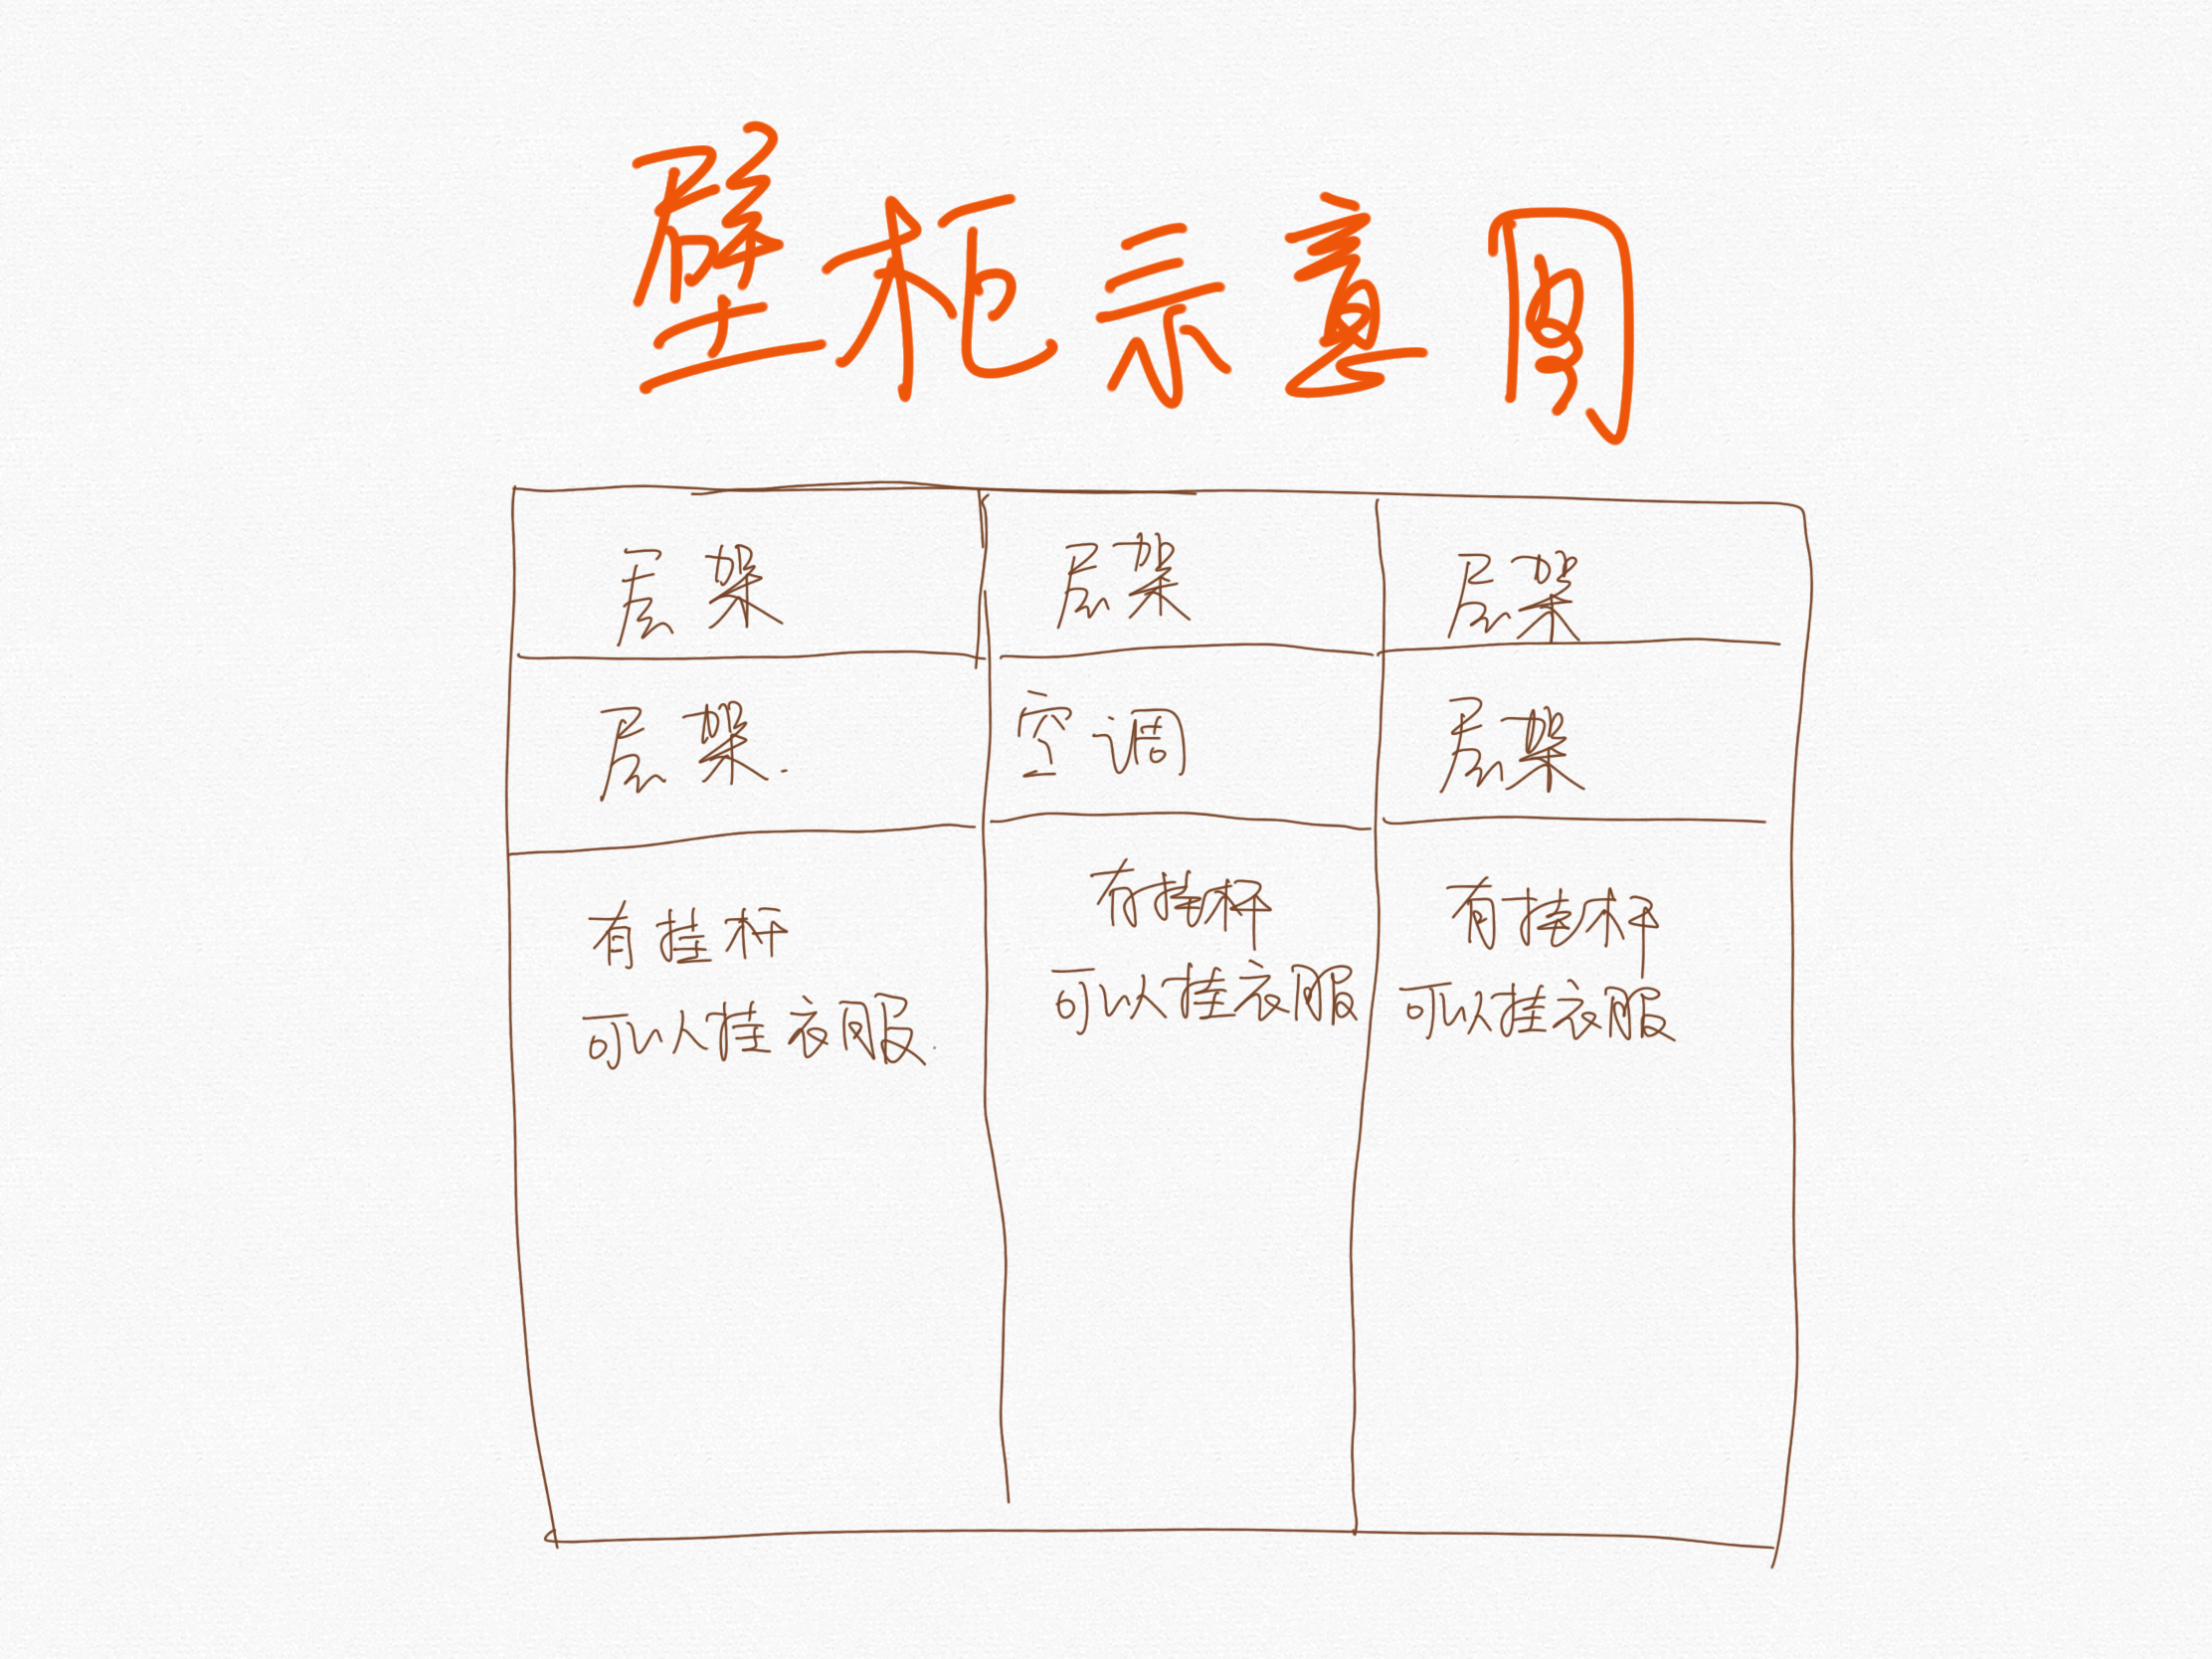 壁柜示意图
层架
层架
层架
层架
空调
层架
有挂杆
可以挂衣服
有挂杆
可以挂衣服
有挂杆
可以挂衣服